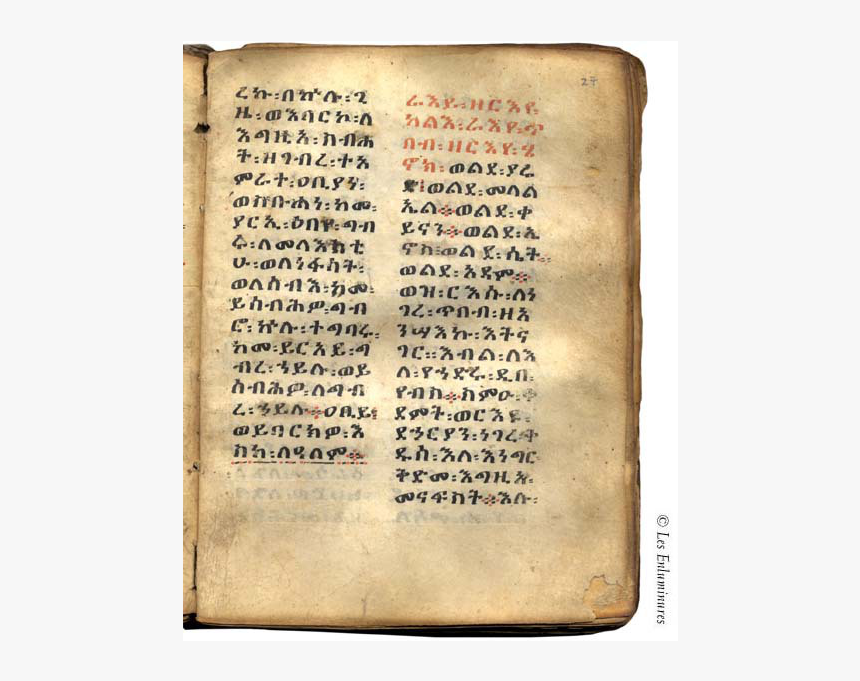 ረኩ፡በኵሉ፡ጊ
ዜ፡ወእባርኮ፡ለ
እግዚአ፡ስብሐ
ት፡ዘገብረ፡ተአ
ምራተ፡ዐቢያነ፡
ወስቡሐነ፡ከመ፡
ያርኢ፡ዕበየ፡ግብ
ሩ፡ለመላእክቲ
ሁ፡ወለነፋስት፡
ወለሰብእ፡ከመ፡
ይሰብሕዎ፡ግብ
ሮ፡ኵሉ፡ተግባሩ፡
ከመ፡ይርአይ፡ግ
ብረ፡ኀይሉ፡ወይ
ሰብሕዎ፡ለግብ
ረ፡ኀይሉ፡ዐቢይ፡
ወይባርክዎ፡እ
ስከ፡ለዓለም።
24
ራእይ፡ዘርእየ፡
ካልእ፡ራእየ፡ጥ
በብ፡ዘርእየ፡ሄ
ኖክ፡ወልደ፡ያሬ
ድ፡ወልደ፡መላል
ኤል።ወልደ፡ቀ
ይናን።ወልደ፡ኢ
ኖስ፡ወልደ፡ሴት።
ወልደ፡አዳም።
ወዝ፡ርእሱ፡ለነ
ገረ፡ጥበብ፡ዘአ
ንሣእኩ፡እትና
ገር፡፡እብል፡ለእ
ለ፡የኀድሩ፡ዲበ፡
የብስ።ስምዑ፡ቀ
ደምት፡ወርእዩ፡
ደኃርያን፡ነገረ፡ቅ
ዱስ፡እለ፡እነግር
ቅድመ፡እግዚአ፡
መናፍስት።እሉ፡
© Les Enluminures